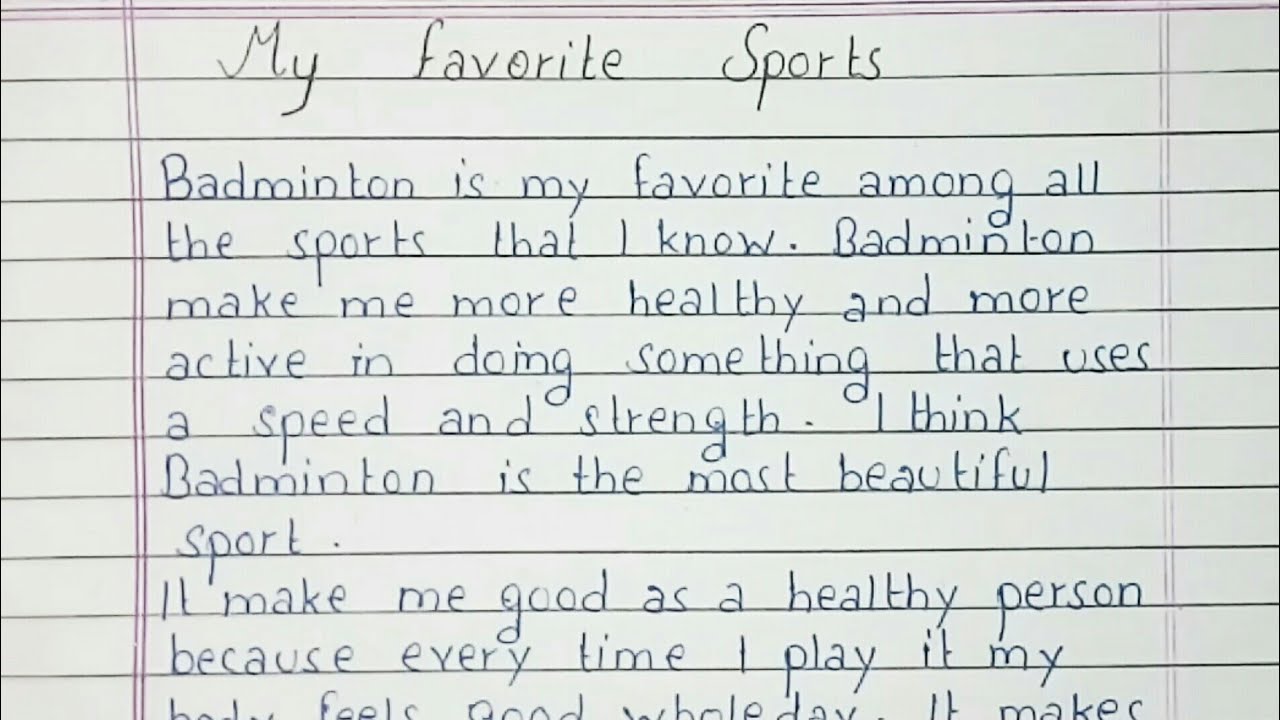 My favorite Sports
Badminton is my favorite among all
the sports that I know. Badminton
make me more healthy and more
active in doing something that uses
a speed and strength. I think
Badminton is the most beautiful
sport.
It make me good as a healthy person
because every time I play it my
body feels good wholeday. It makes